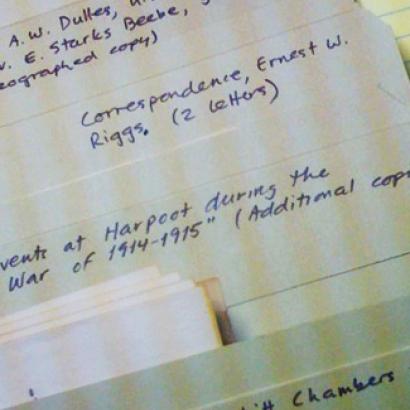 A.W. Dulles,
E. Starks Beebe,
eographed copy)
Correspondence, Ernest W.
Riggs. (2 letters)
vents at Harpoot during the
War of 1914-1915" (Additional cop
Chambers